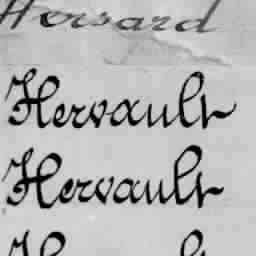 Hersard
Hervault
Hervault